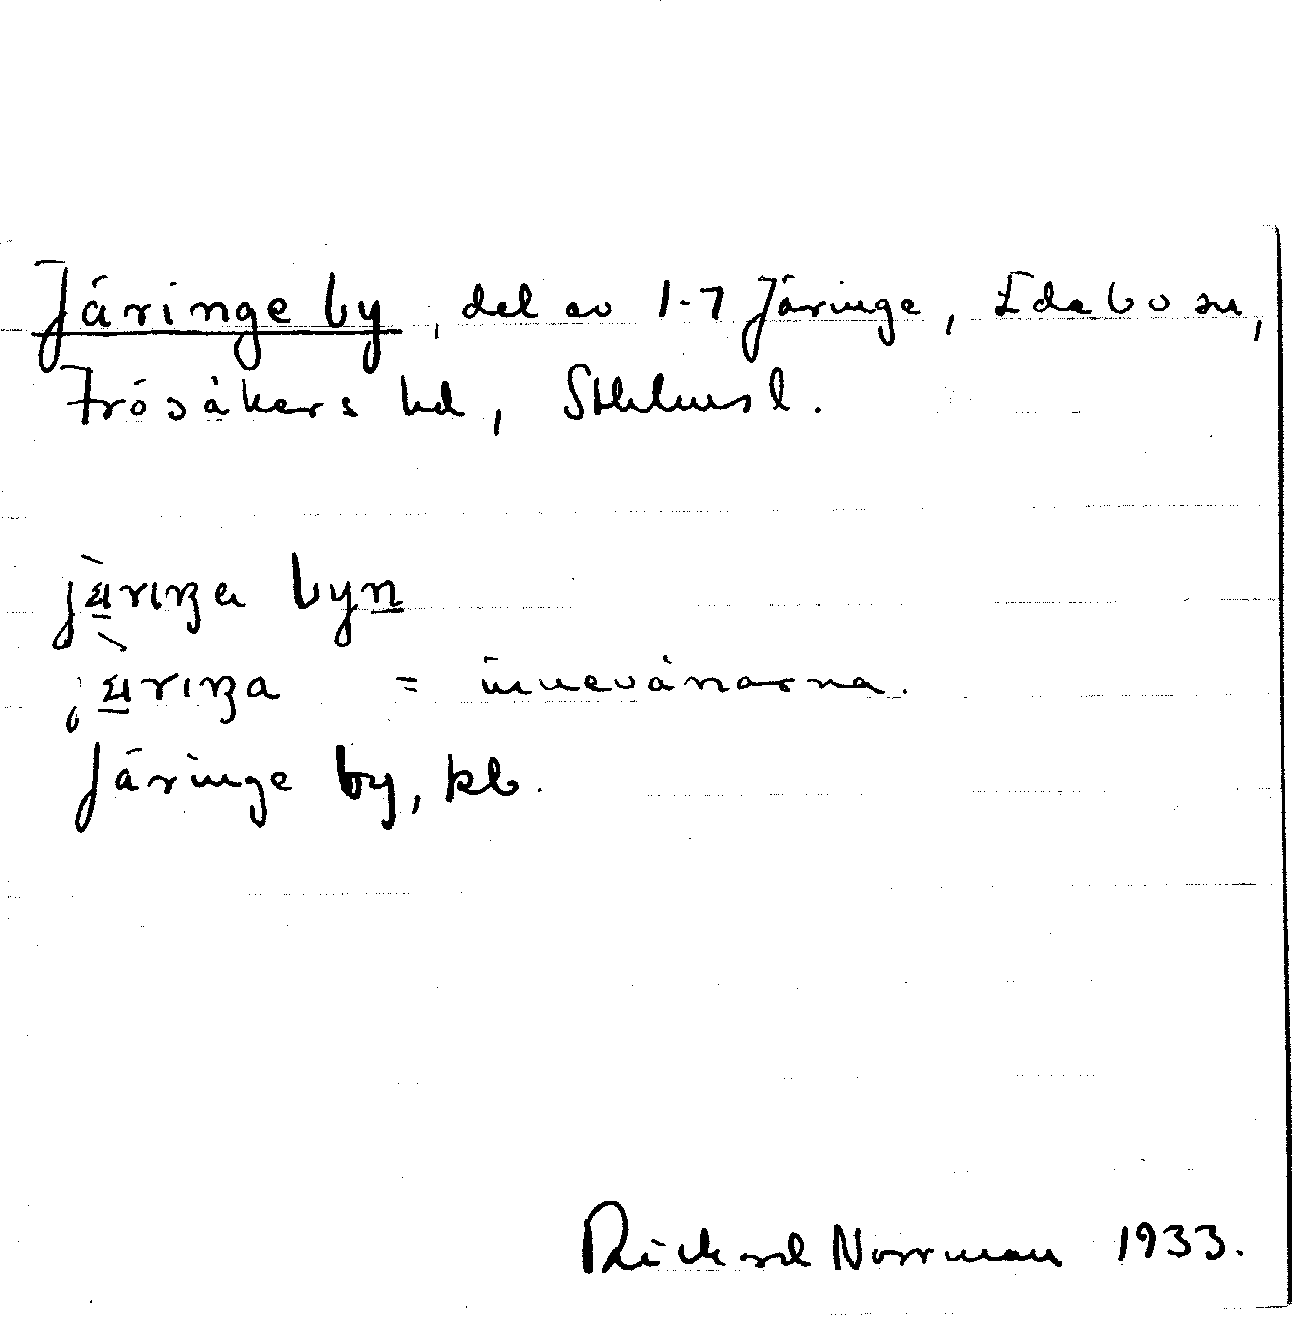 Järinge by, del av 1-7 Järinge, Edebo sn,
Frösåkers hd, Sthlmsl.
jä̀rıŋa byn
jä̀rıŋa = innevånarna.
Järinge by, kb.
Rickard Norrman 1933.